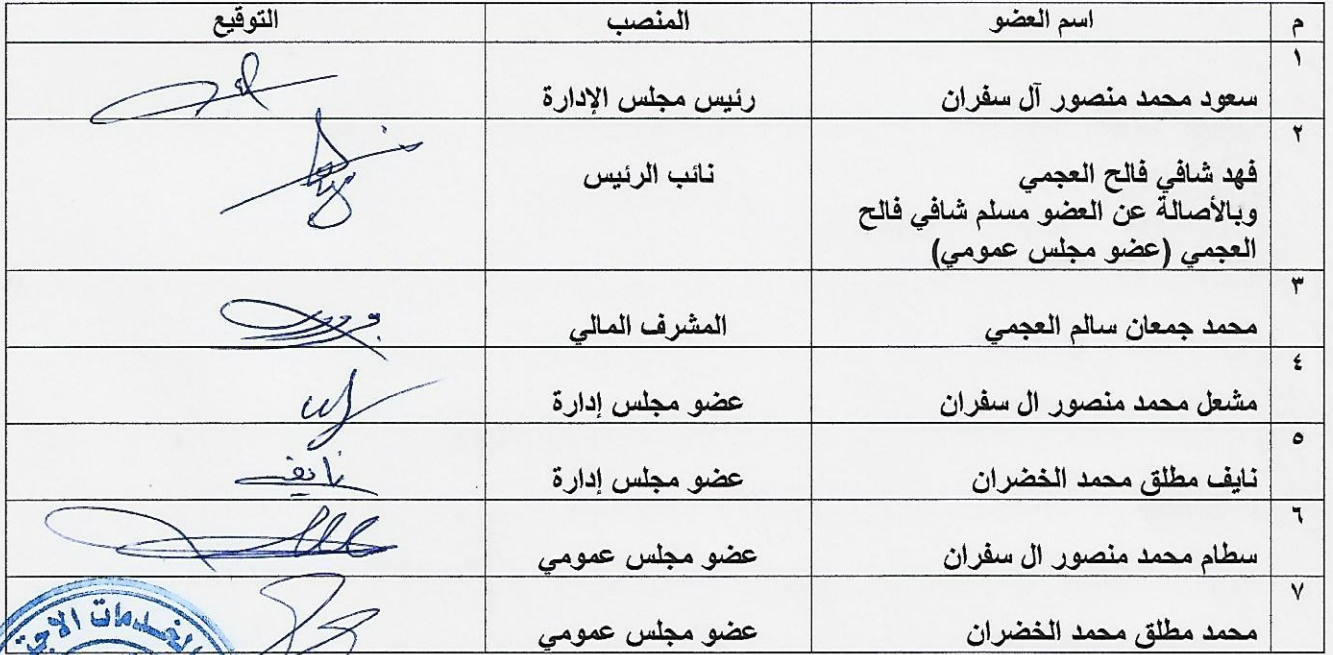 م اسم العضو المنصب التوقيع
١
سعود محمد منصور آل سفران رئيس مجلس الإدارة
٢
فهد شافي فالح العجمي نائب الرئيس
وبالأصالة عن العضو مسلم شافي فالح
العجمي (عضو مجلس عمومي)
٣
محمد جمعان سالم العجمي المشرف المالي
٤
مشعل محمد منصور ال سفران عضو مجلس إدارة
٥
نايف مطلق محمد الخضران عضو مجلس إدارة نايف
٦
سطام محمد منصور ال سفران عضو مجلس عمومي
٧
محمد مطلق محمد الخضران عضو مجلس عمومي